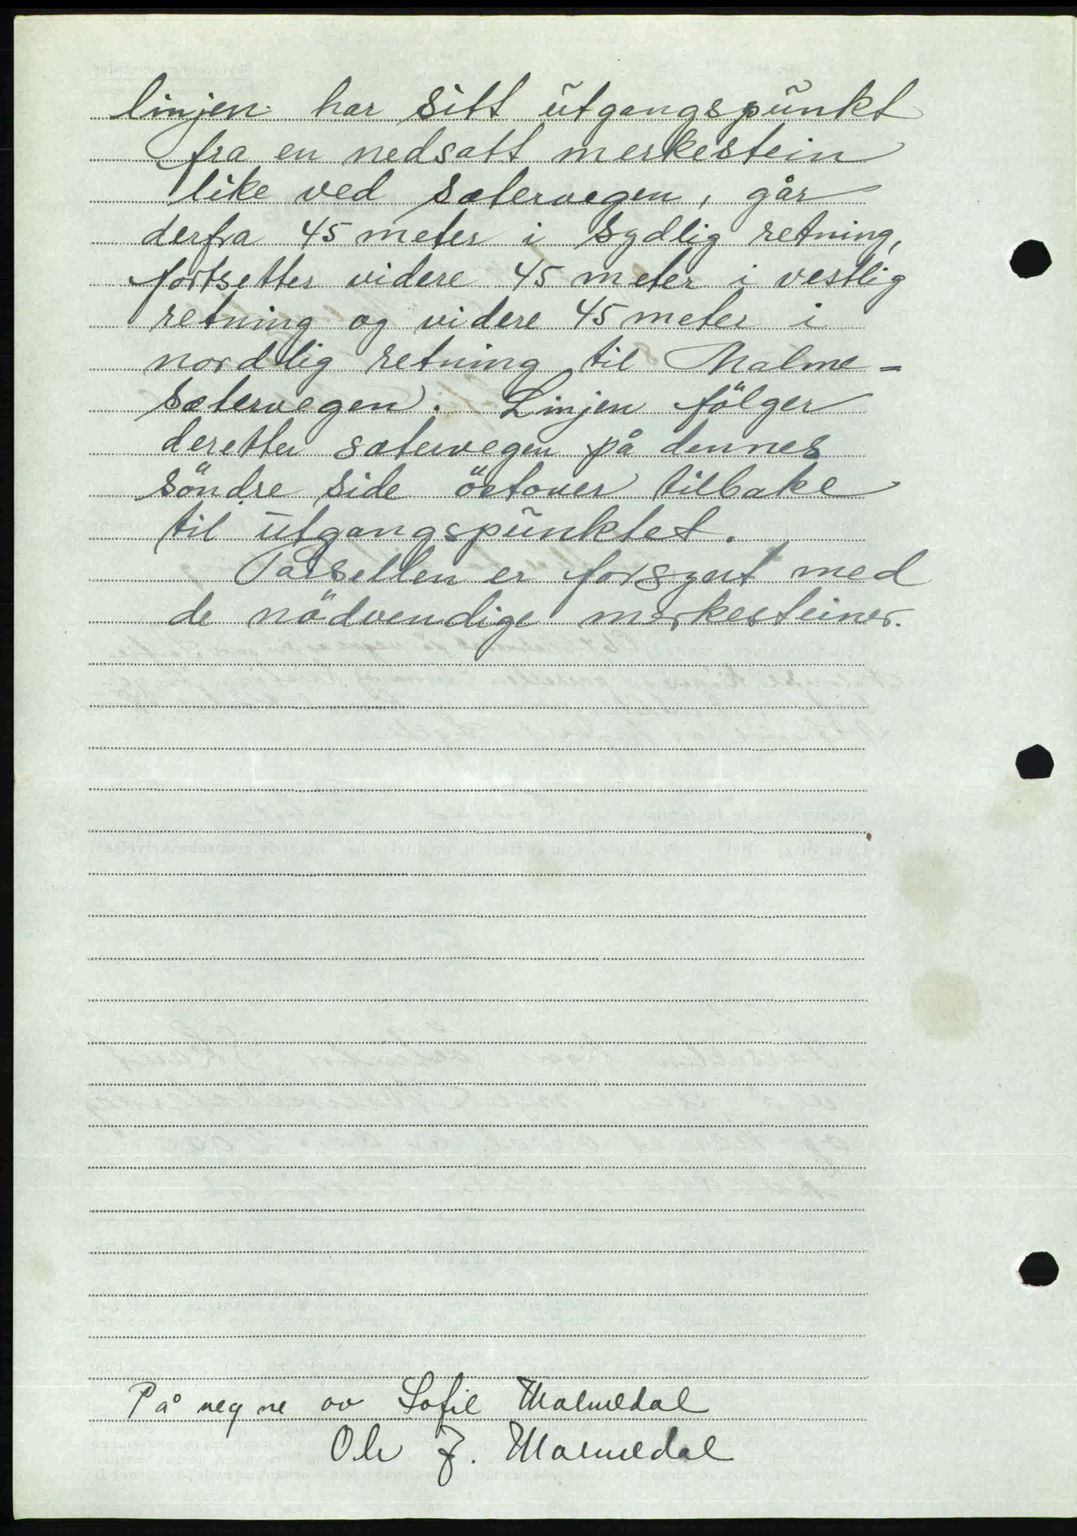 linjen har sitt utgangspunkt
fra en nedsatt merkestein
like ved sætervegen, går
derfra 45 meter i sydlig retning,
fortsetter videre 45 meter i vestlig
retning og videre 45 meter i
nordlig retning til Malme-
sætervegen. Linjen fölger
deretter sætervegen på dennes
söndre side östover tilbake
til utgangspunktet.
Parsellen er forsynt med
de nödvendige merkesteiner.
På vegne av Sofie Malmedal
Ole J. Malmedal